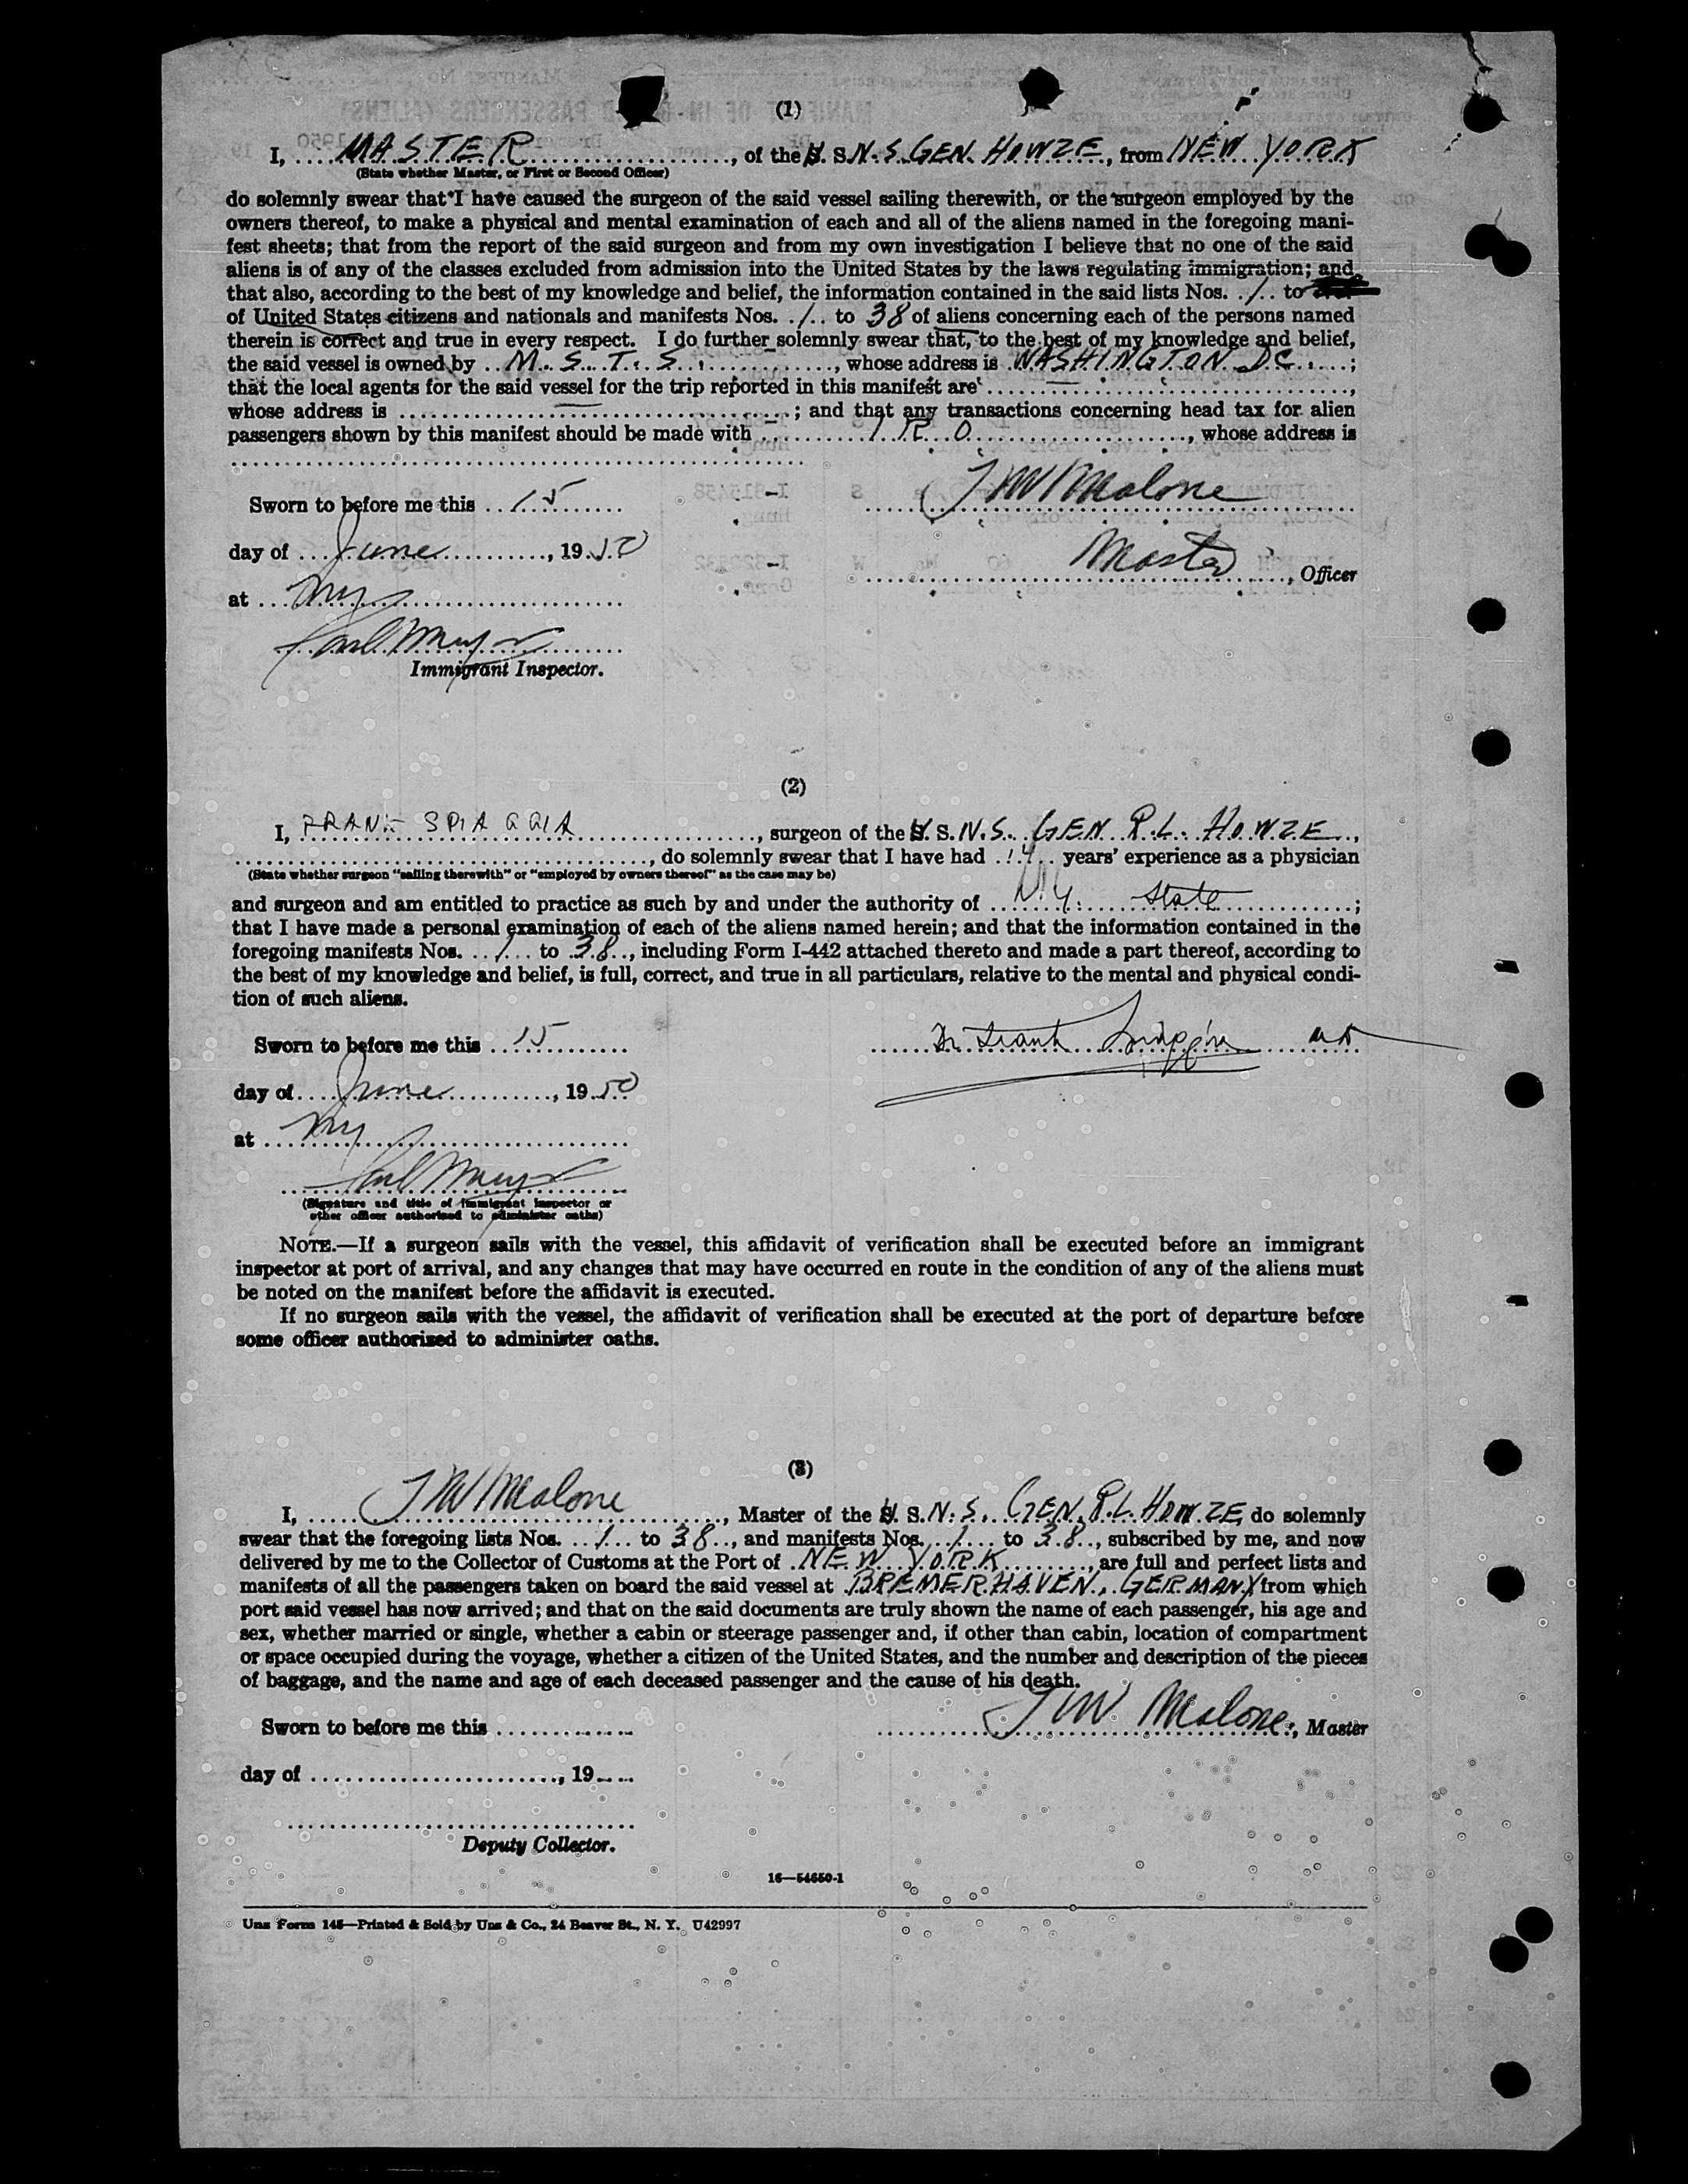 (1)
I, MASTER, of the U. S. N. S. GEN. HOWZE, from NEW YORK
(State whether Master, or First or Second Officer)
do solemnly swear that I have caused the surgeon of the said vessel sailing therewith, or the surgeon employed by the
owners thereof, to make a physical and mental examination of each and all of the aliens named in the foregoing mani-
fest sheets; that from the report of the said surgeon and from my own investigation I believe that no one of the said
aliens is of any of the classes excluded from admission into the United States by the laws regulating immigration; and
that also, according to the best of my knowledge and belief, the information contained in the said lists Nos. 1 to
of United States citizens and nationals and manifests Nos. 1 to 38 of aliens concerning each of the persons named
therein is correct and true in every respect. I do further solemnly swear that, to the best of my knowledge and belief,
the said vessel is owned by M. S. T. S., whose address is WASHINGTON D.C.;
that the local agents for the said vessel for the trip reported in this manifest are —,
whose address is —; and that any transactions concerning head tax for alien
passengers shown by this manifest should be made with I R O, whose address is
Sworn to before me this 15
J W Malone
day of June, 1950
Master, Officer
at NY
Immigrant Inspector.
(2)
I, FRANK SPIAGGIA, surgeon of the U. S. N. S. GEN R. L. HOWZE,
, do solemnly swear that I have had 14 years' experience as a physician
(State whether surgeon "sailing therewith" or "employed by owners thereof" as the case may be)
and surgeon and am entitled to practice as such by and under the authority of N.Y. State;
that I have made a personal examination of each of the aliens named herein; and that the information contained in the
foregoing manifests Nos. 1 to 38, including Form I-442 attached thereto and made a part thereof, according to
the best of my knowledge and belief, is full, correct, and true in all particulars, relative to the mental and physical condi-
tion of such aliens.
Sworn to before me this 15
Dr Frank Spiaggia MD
day of June, 1950
at NY
(Signature and title of immigrant inspector or
other officer authorized to administer oaths)
NOTE.—If a surgeon sails with the vessel, this affidavit of verification shall be executed before an immigrant
inspector at port of arrival, and any changes that may have occurred en route in the condition of any of the aliens must
be noted on the manifest before the affidavit is executed.
If no surgeon sails with the vessel, the affidavit of verification shall be executed at the port of departure before
some officer authorized to administer oaths.
(3)
I, J W Malone, Master of the U. S. N. S. GEN. R. L. HOWZE, do solemnly
swear that the foregoing lists Nos. 1 to 38, and manifests Nos. 1 to 38, subscribed by me, and now
delivered by me to the Collector of Customs at the Port of NEW YORK, are full and perfect lists and
manifests of all the passengers taken on board the said vessel at BREMERHAVEN, GERMANY from which
port said vessel has now arrived; and that on the said documents are truly shown the name of each passenger, his age and
sex, whether married or single, whether a cabin or steerage passenger and, if other than cabin, location of compartment
or space occupied during the voyage, whether a citizen of the United States, and the number and description of the pieces
of baggage, and the name and age of each deceased passenger and the cause of his death.
Sworn to before me this
J W Malone, Master
day of , 19
Deputy Collector.
16—54650-1
Unz Form 145—Printed & Sold by Unz & Co., 24 Beaver St., N. Y. U42997